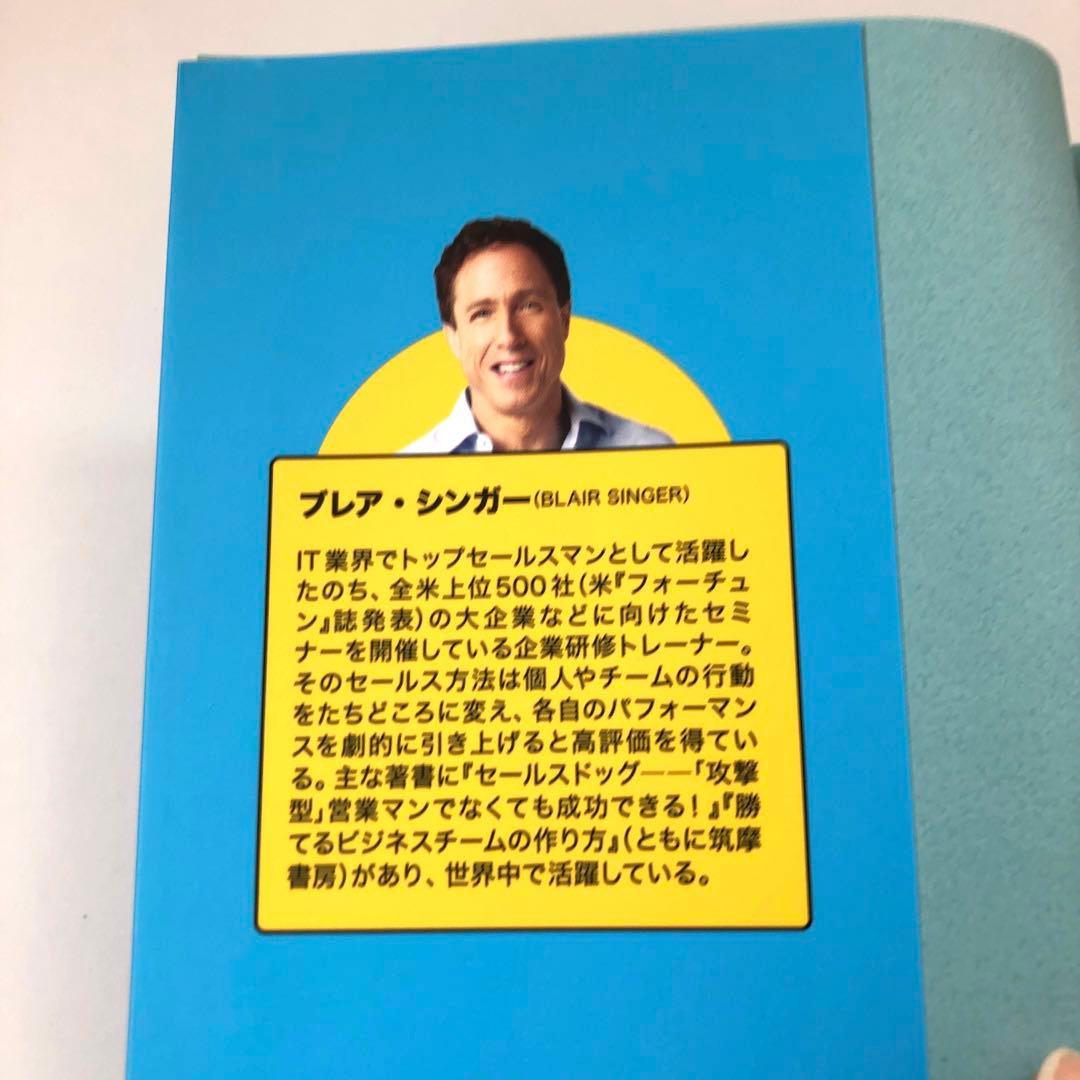 ブレア・シンガー(BLAIR SINGER)
IT業界でトップセールスマンとして活躍し
たのち、全米上位500社(米『フォーチュ
ン』誌発表)の大企業などに向けたセミ
ナーを開催している企業研修トレーナー。
そのセールス方法は個人やチームの行動
をたちどころに変え、各自のパフォーマン
スを劇的に引き上げると高評価を得てい
る。主な著書に『セールスドッグ――「攻撃
型」営業マンでなくても成功できる!』『勝
てるビジネスチームの作り方』(ともに筑摩
書房)があり、世界中で活躍している。